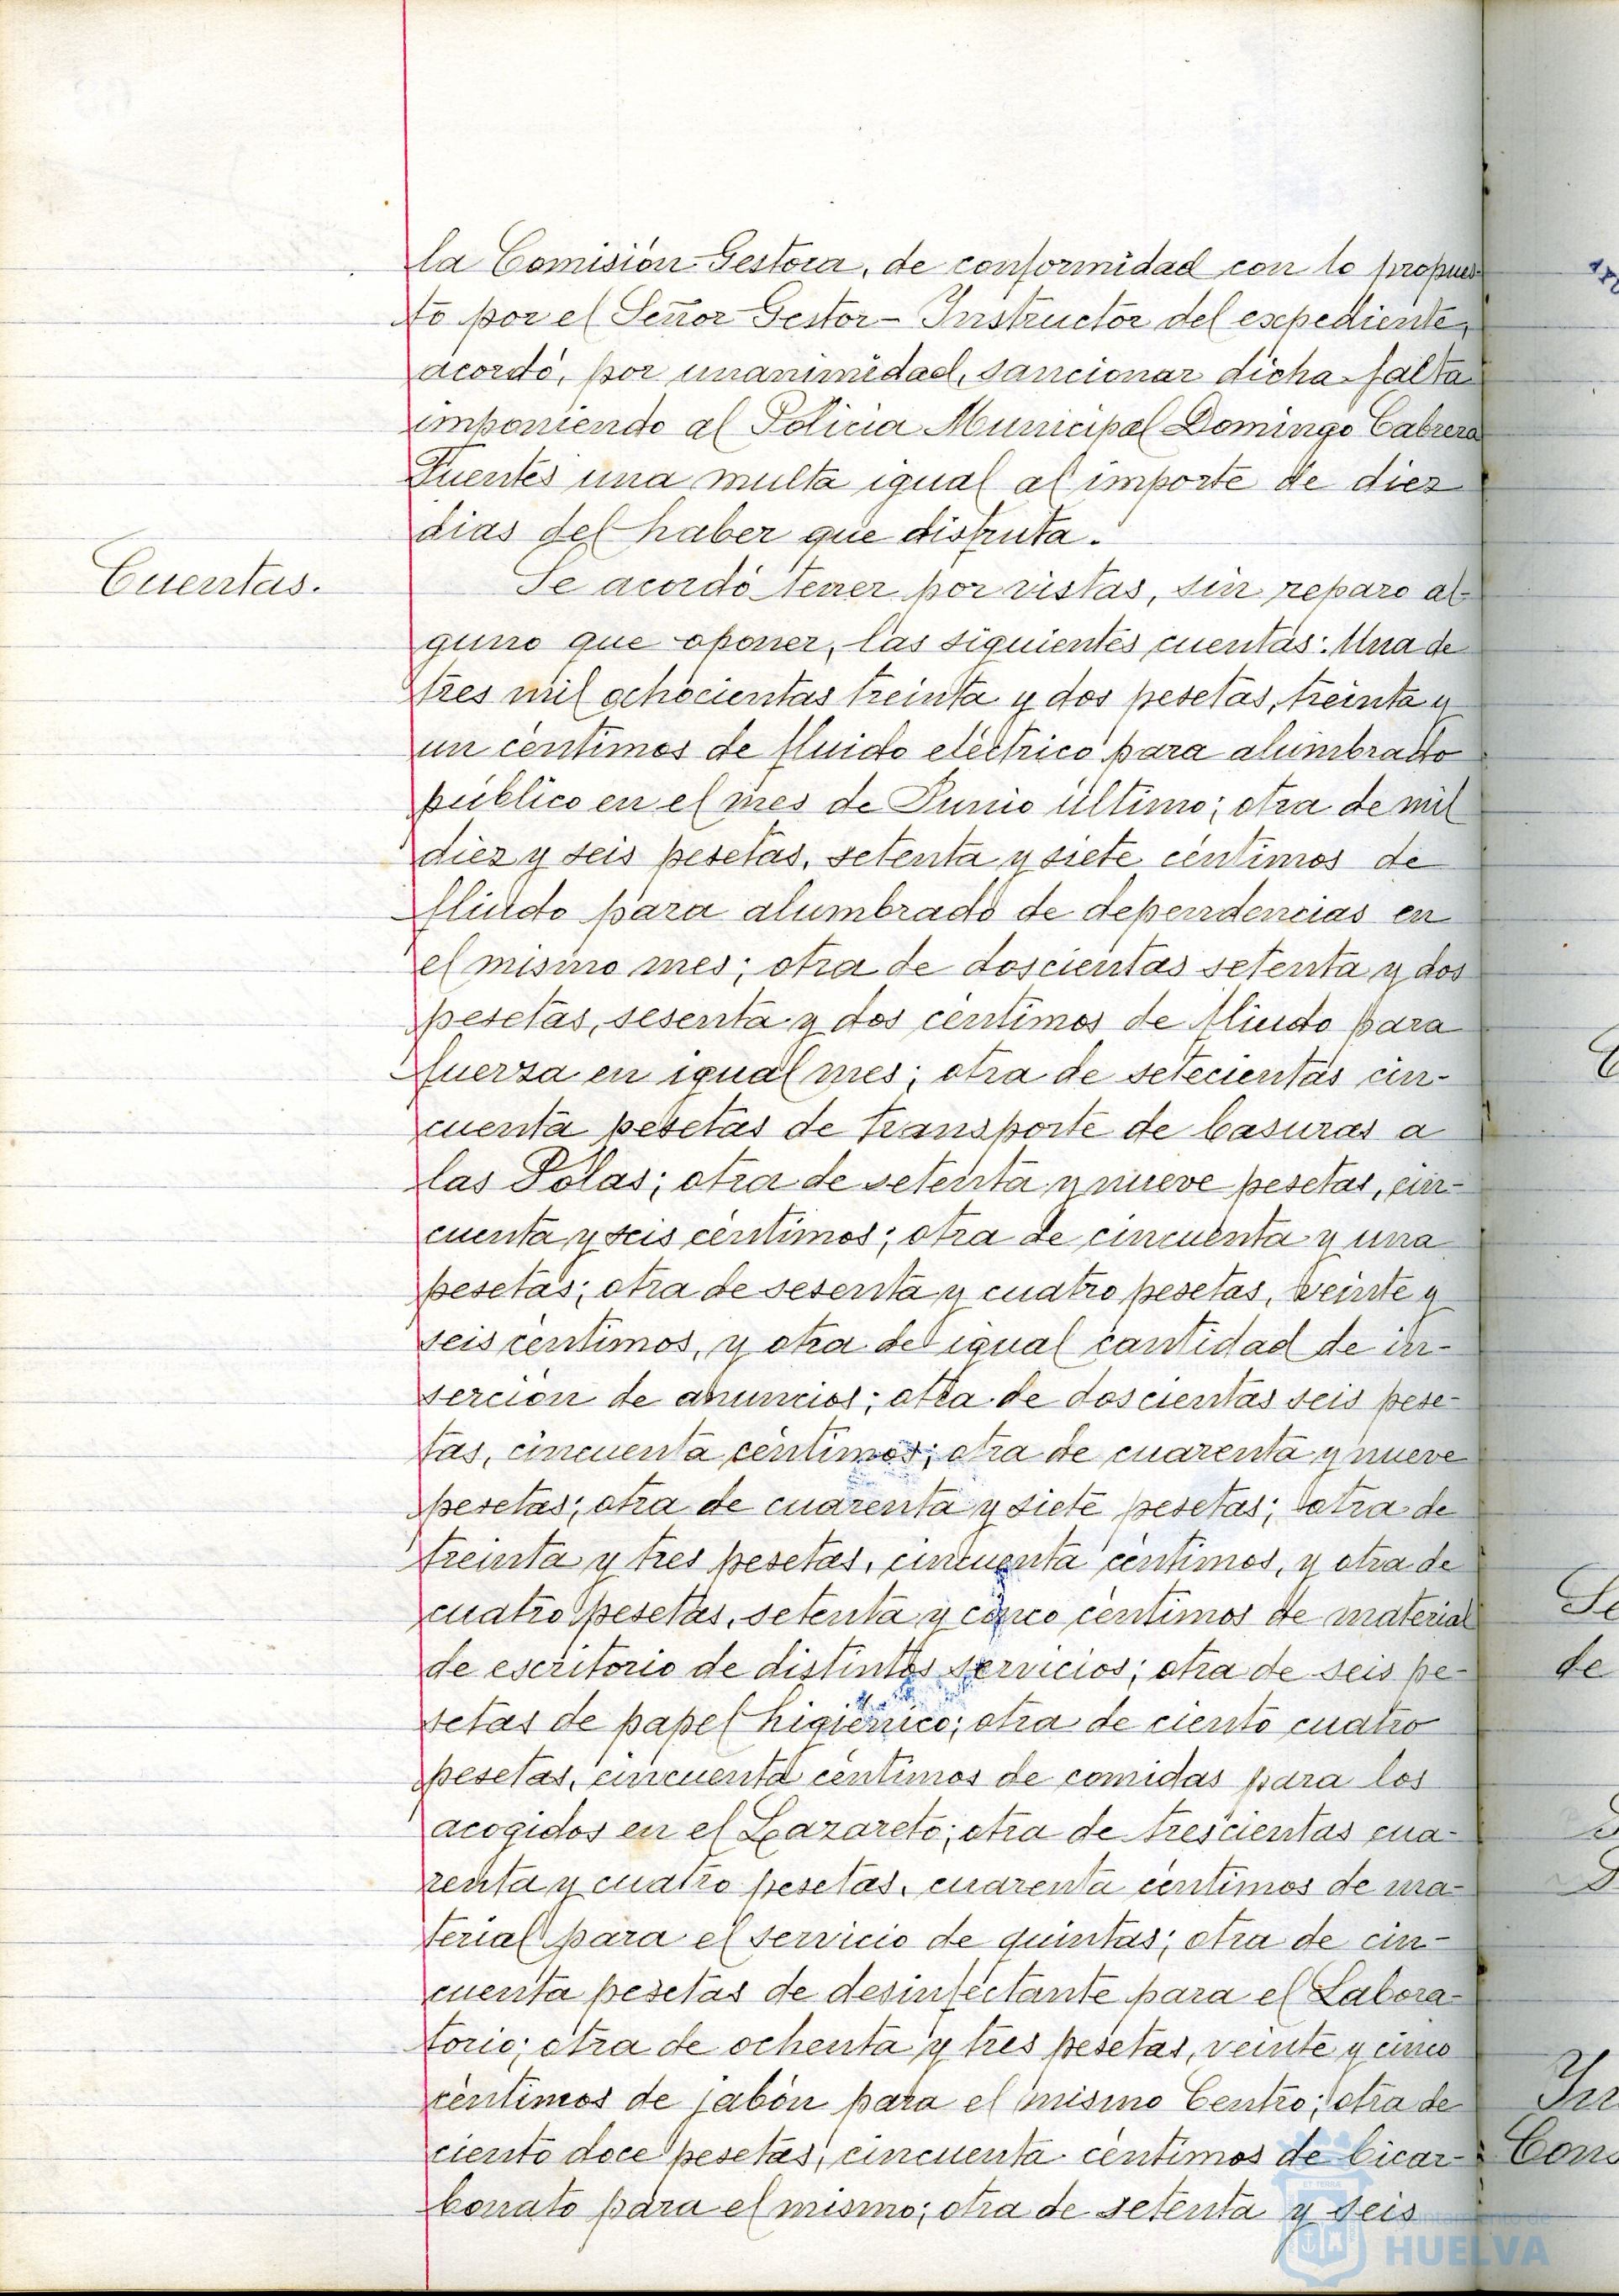 la Comisión Gestora, de conformidad con lo propues-
to por el Señor Gestor-Instructor del expediente,
acordó, por unanimidad, sancionar dicha falta
imponiendo al Policia Municipal Domingo Cabrera
Fuentes una multa igual al importe de diez
dias del haber que disfruta.
Cuentas.
Se acordó tener por vistas, sin reparo al-
guno que oponer, las siguientes cuentas: Una de
tres mil ochocientas treinta y dos pesetas, treinta y
un céntimos de fluido eléctrico para alumbrado
público en el mes de Junio último; otra de mil
diez y seis pesetas, setenta y siete céntimos de
fluido para alumbrado de dependencias en
el mismo mes; otra de doscientas setenta y dos
pesetas, sesenta y dos céntimos de fluido para
fuerza en igual mes; otra de setecientas cin-
cuenta pesetas de transporte de basuras a
las Polas; otra de setenta y nueve pesetas, cin-
cuenta y seis céntimos; otra de cincuenta y una
pesetas; otra de sesenta y cuatro pesetas, veinte y
seis céntimos, y otra de igual cantidad de in-
serción de anuncios; otra de doscientas seis pese-
tas, cincuenta céntimos; otra de cuarenta y nueve
pesetas; otra de cuarenta y siete pesetas; otra de
treinta y tres pesetas, cincuenta céntimos, y otra de
cuatro pesetas, setenta y cinco céntimos de material
de escritorio de distintos servicios; otra de seis pe-
setas de papel higiénico; otra de ciento cuatro
pesetas, cincuenta céntimos de comidas para los
acogidos en el Lazareto; otra de trescientas cua-
renta y cuatro pesetas, cuarenta céntimos de ma-
terial para el servicio de quintas; otra de cin-
cuenta pesetas de desinfectante para el Labora-
torio; otra de ochenta y tres pesetas, veinte y cinco
céntimos de jabón para el mismo Centro; otra de
ciento doce pesetas, cincuenta céntimos de bicar-
bonato para el mismo; otra de setenta y seis
de
HUELVA